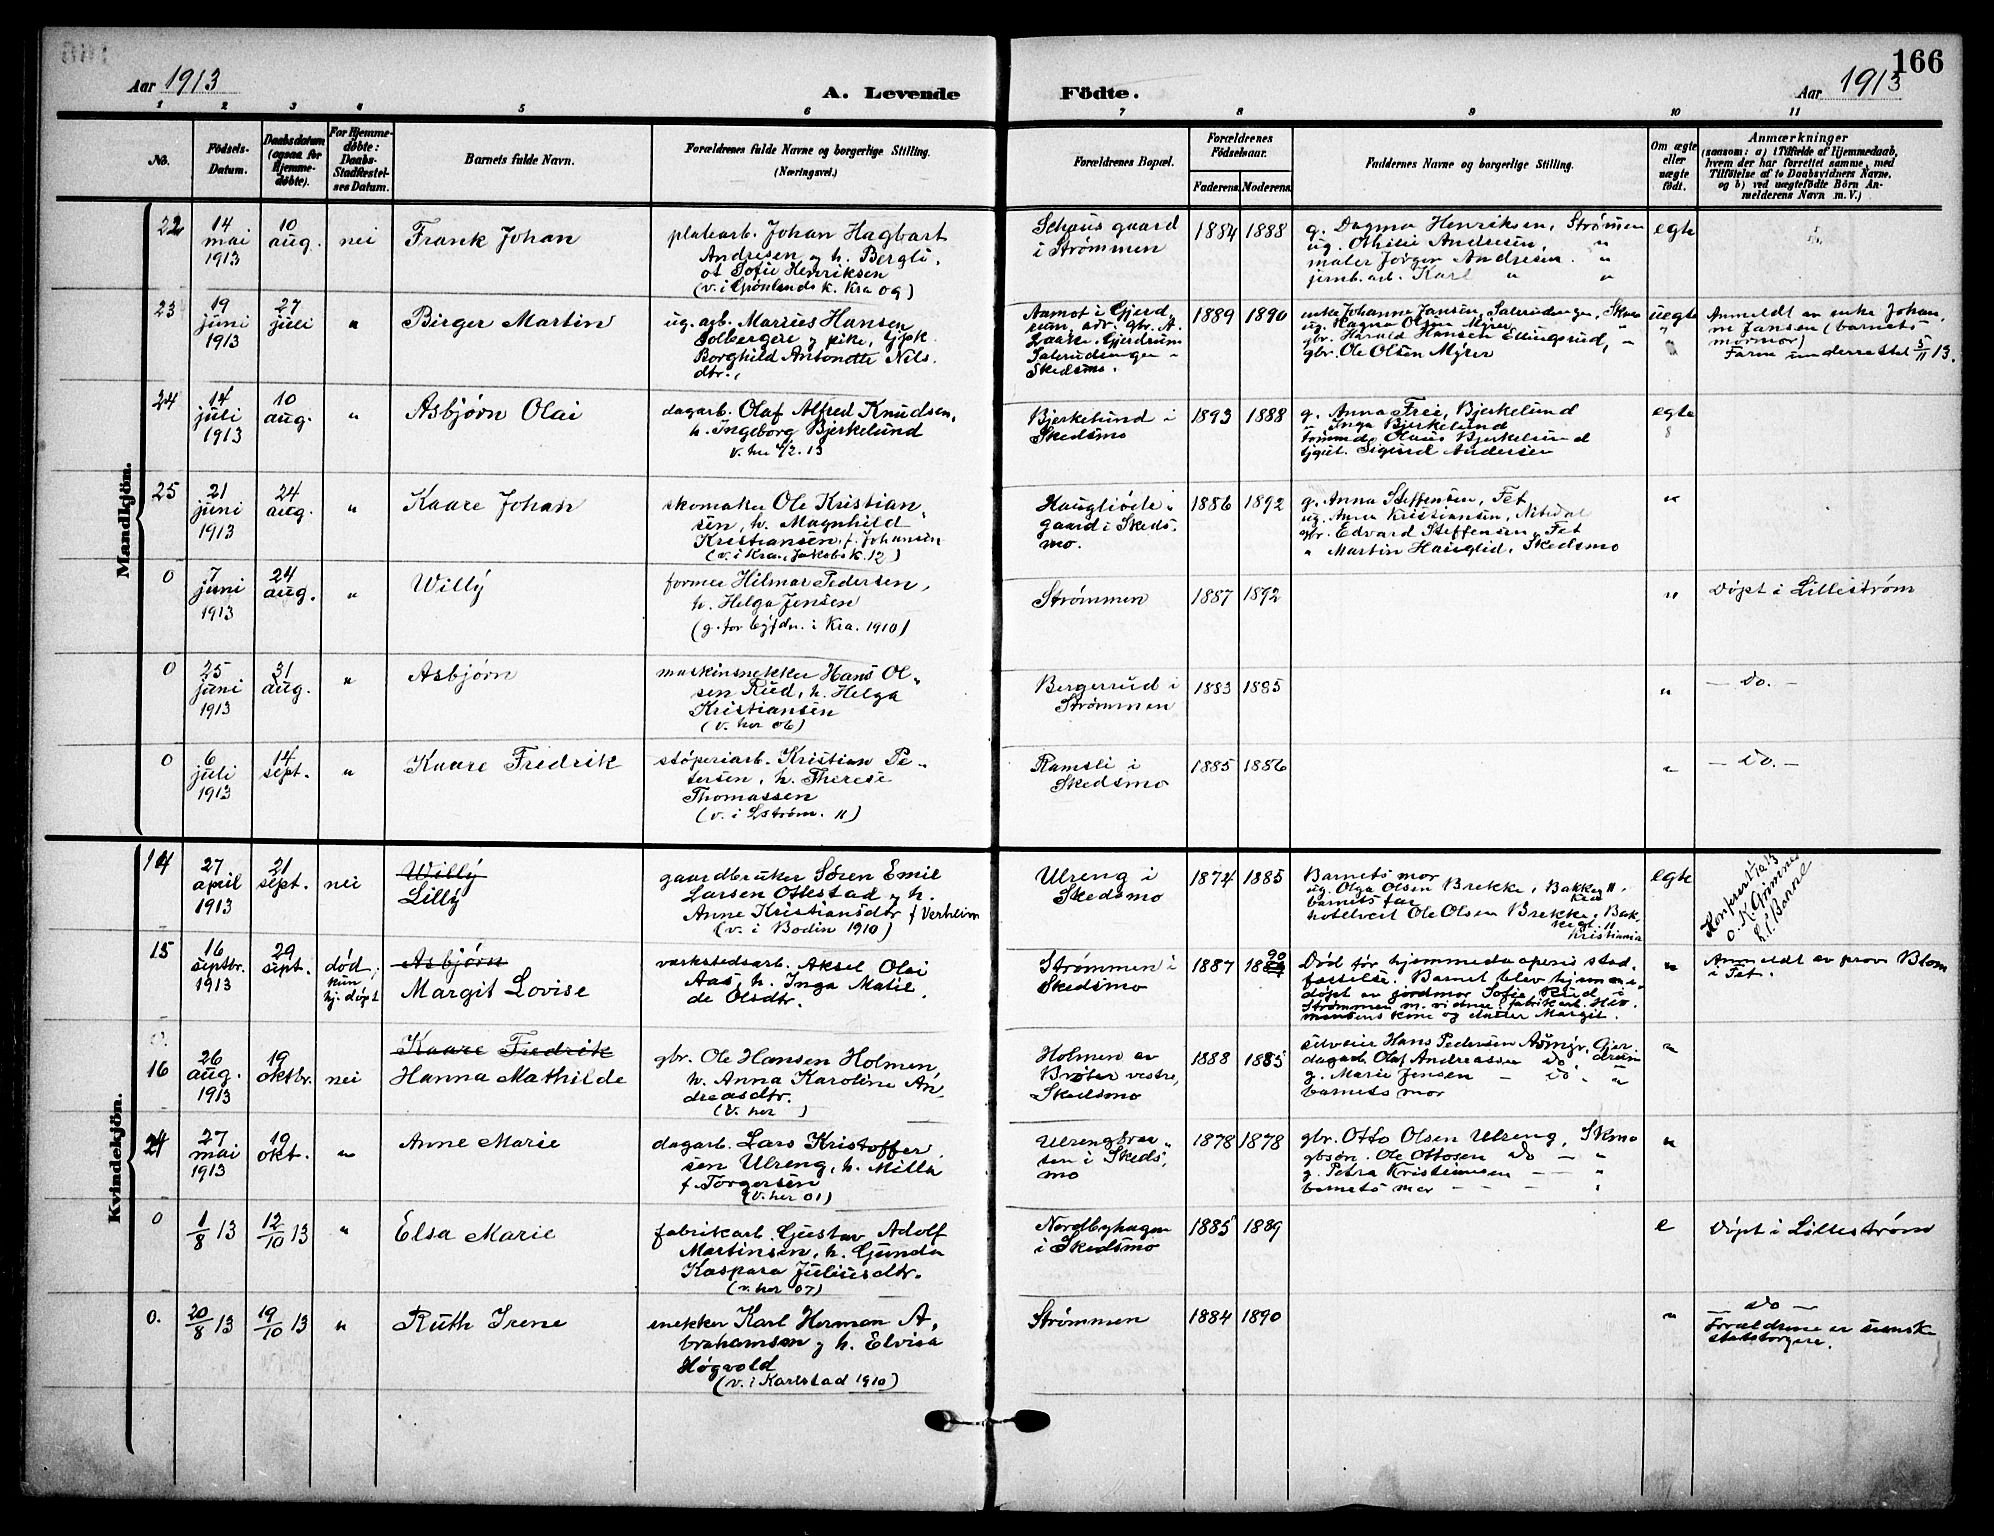 166
Aar 1913
A. Levende
Födte.
Aar 1913
1 2 3 4 5 6 7 8 9 10 11
No.
Födsels-
Datum.
Daabsdatum
(ogsaa for
Hjemme-
døbte).
For Hjemme-
døbte:
Daabs-
Stadfæstel-
ses Datum.
Barnets fulde Navn.
Forældrenes fulde Navne og borgerlige Stilling.
(Næringsvei.)
Forældrenes Bopæl.
Forældrenes
Födselsaar.
Faderens. Moderens.
Faddernes Navne og borgerlige Stilling.
Om ægte
eller
uægte
födt.
Anmærkninger
(saasom: a) i Tilfælde af Hjemmedaab,
hvem der har forrettet samme, med
Tilföielse af to Daabsvidners Navne,
og b) ved uægtefödte Börn An-
melderens Navn m. V.)
Mandkjön.
22
14
mai
1913
10
aug.
nei
Frank Johan
platearb. Johan Hagbart
Andresen og h. Bergli-
ot Sofie Henriksen
(v. i Grønlands k. Kra 09)
Schausgaard
i Strømmen
1884 1888
g. Dagma Henriksen, Strømmen
ug. Othilie Andresen, "
maler Jørgen Andresen. "
jernb. arb. Karl " "
egte
23
19
juni
1913
27
juli
"
Birger Martin
ug. arb. Marius Hansen
Solbergeie og pike, tjpk.
Borghild Antonette Nils
dtr.,
Aamot i Gjerd
rum, adr. gbr. A.
Laake, Gjerdrum
Salerudengen -
Skedsmo.
1889 1890
enke Johanne Jansen, Salerudengen, Skmo
ug. Magna Olsen Myrer "
gbr. Harald Hansen Ellingsrud, "
gbr. Ole Olsen Myrer
uegte
Anmeldt av enke Johan,
ne Jansen (barnets
mormor)
Farm underrettet 5/11 13.
24
14
juli
1913
10
aug.
"
Asbjørn Olai
dagarb. Olaf Alfred Knudsen,
h. Ingeborg Bjerkelund
v. her 4/2. 13
Bjerkelund i
Skedsmo
1893 1888
g. Anna Frei, Bjerkelund
" Inga Bjerkelund
tømmd. Olaus Bjerkelund
tjgut. Sigurd Andersen
egte
25
21
juni
1913
24
aug.
"
Kaare Johan
skomaker Ole Kristian,
sen, h. Magnhild
Kristiansen, f. Johansen
(v. i Kra. Jakobsk. 12)
Hauglieie i
gaard i Skeds,
mo.
1886 1892
g. Anna Steffensen, Fet
ug. Anna Kristiansen, Nitedal
gbr. Edvard Steffensen, Fet
" Martin Hauglid, Skedsmo
"
0
7
juni
1913
24
aug.
"
Willy
former Hilmar Pedersen,
h. Helga Jensen
(g. for byfdn. i Kra. 1910)
Strømmen
1887 1892
"
Døpt i Lillestrøm
0
25
juni
1913
31
aug.
"
Asbjørn
maskinsnekker Hans Ol-
sen Rud, h. Helga
Kristiansen
(v. her 06)
Bergerrud i
Strømmen
1883 1885
"
- Do. -
0
6
juli
1913
14
sept.
"
Kaare Fredrik
støperiarb. Kristian Pe-
tersen, h. Therese
Thomassen
(v. i Lstrøm. 11)
Ramsli i
Skedsmo
1885 1886
"
- Do. -
Kvindekjön.
14
27
april
1913
21
sept.
nei
Willy
Lilly
gaardbruker Søren Emil
Larsen Ottestad og h.
Anne Kristiansdtr f Verheim
(v. i Bodin 1910)
Ulreng i
Skedsmo
1874 1885
Barnets mor
ug. Olga Olsen Brekke, Bakkeg 11.
Kra
barnets far
hotelveit Ole Olsen Brekke, Bak-
keg. 11
Kristiania
egte
15
16
septbr.
1913
29
sept.
død,
kun
hj. døpt
Asbjørn
Margit Lovise
verkstedsarb. Aksel Olai
Aas, h. Inga Matil-
de Olsdtr.
Strømmen i
Skedsmo
1887 1890
Død før hjemmedaapens stad-
fæstelse. Barnet blev hjemme-
døpt av jordmor Sofie Rud i
Strømmen m. vidne: fabrikarb. Her
mansens kone og datter Margit.
"
Anmeldt av prov Blom
i Fet.
16
26
aug.
1913
19
oktbr.
nei
Kaare Fredrik
Hanna Mathilde
gbr. Ole Hansen Holmen,
h. Anna Karoline An,
dreasdtr.
(v. her )
Holmen av
Brøter vestre,
Skedsmo
1888 1885
selveier Hans Pedersen Asmyr, Gjer
dagarb. Olaf Andreassen Do drum
g. Marie Jensen - Do "
barnets mor
"
24
27
mai
1913
19
okt.
"
Anne Marie
dagarb. Lars Kristoffer,
sen Ulreng, h. Milla
f Torgersen
(v. her 01)
Ulrengbraa-
ten i Skeds,
mo
1878 1878
gbr. Otto Olsen Ulreng, Skmo
gbsøn. Ole Ottosen Do - "
g. Petra Kristiansen - - "
barnets mor - - "
"
0
1/8 13
12/10 13
"
Elsa Marie
fabrikarb. Gustav Adolf
Martinsen, h. Gunda
Kaspara Juliusdtr.
(v. her 07)
Nordbyhagen
i Skedsmo
1885 1889
e
Døpt i Lillestrøm
0.
20/8 13
19/10 13
"
Ruth Irene
snekker Karl Herman A,
brahamson og h. Elvisa
Høgvold
(v. i Karlstad 1910)
Strømmen
1884 1890
"
- Do -
Forældrene er svenske
statsborgere.